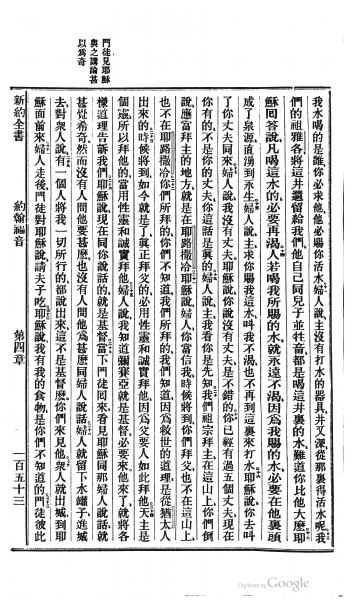 我水喝的是誰你必求他他必賜你活水婦人說主沒有打水的器具井又深從那裏得活水呢我
們的祖雅各將這井遺留給我們他自己同兒子並牲畜都是喝這井裏的水難道你比他大麽耶
穌回答說凡喝這水的必要再渴人若喝我所賜的水就永遠不渴我所賜的水必要在他裏頭
成了泉源直湧到永生婦人說主求你賜我這水叫我不渴也不再到這裏來打水耶穌說你去叫
了你丈夫同來婦人說我沒有丈夫耶穌說你說沒有丈夫是不錯的你已經有過五個丈夫現在
你有的不是你的丈夫你這話是眞的婦人說主我看你是先知我們祖宗拜主在這山上你們倒
說應當拜主的地方就是在耶路撒冷耶穌說婦人你當信我時候將到你們拜父也不在這山上
也不在耶路撒冷你們所拜的你們不知道我們所拜的我們知道因爲救世的道理是從猶太人
出來的時候將到如今就是了眞正拜父的必用性靈和誠實拜他因爲父要人如此拜他天主是
個靈所以拜他的當用性靈和誠實拜他婦人說我知道彌賽亞就是基督必要來他來了就將各
樣道理告訴我們耶穌說現在同你說話的就是基督當下門徒回來看見耶穌同那婦人說話就
甚覺希奇然而沒有人問他要甚麽也沒有人問他爲甚麽同婦人說話婦人就留下水罐子進城
去對衆人說有一個人將我一切所行的都說出來這不是基督麽你們來見他衆人就出城到耶
穌面前來婦人走後門徒對耶穌說請夫子吃耶穌說我有我的食物是你們不知道的門徒彼此
門徒見耶穌
與之講論甚
以爲奇
新約全書 約翰福音 第四章 一百五十三
Digitized by Google